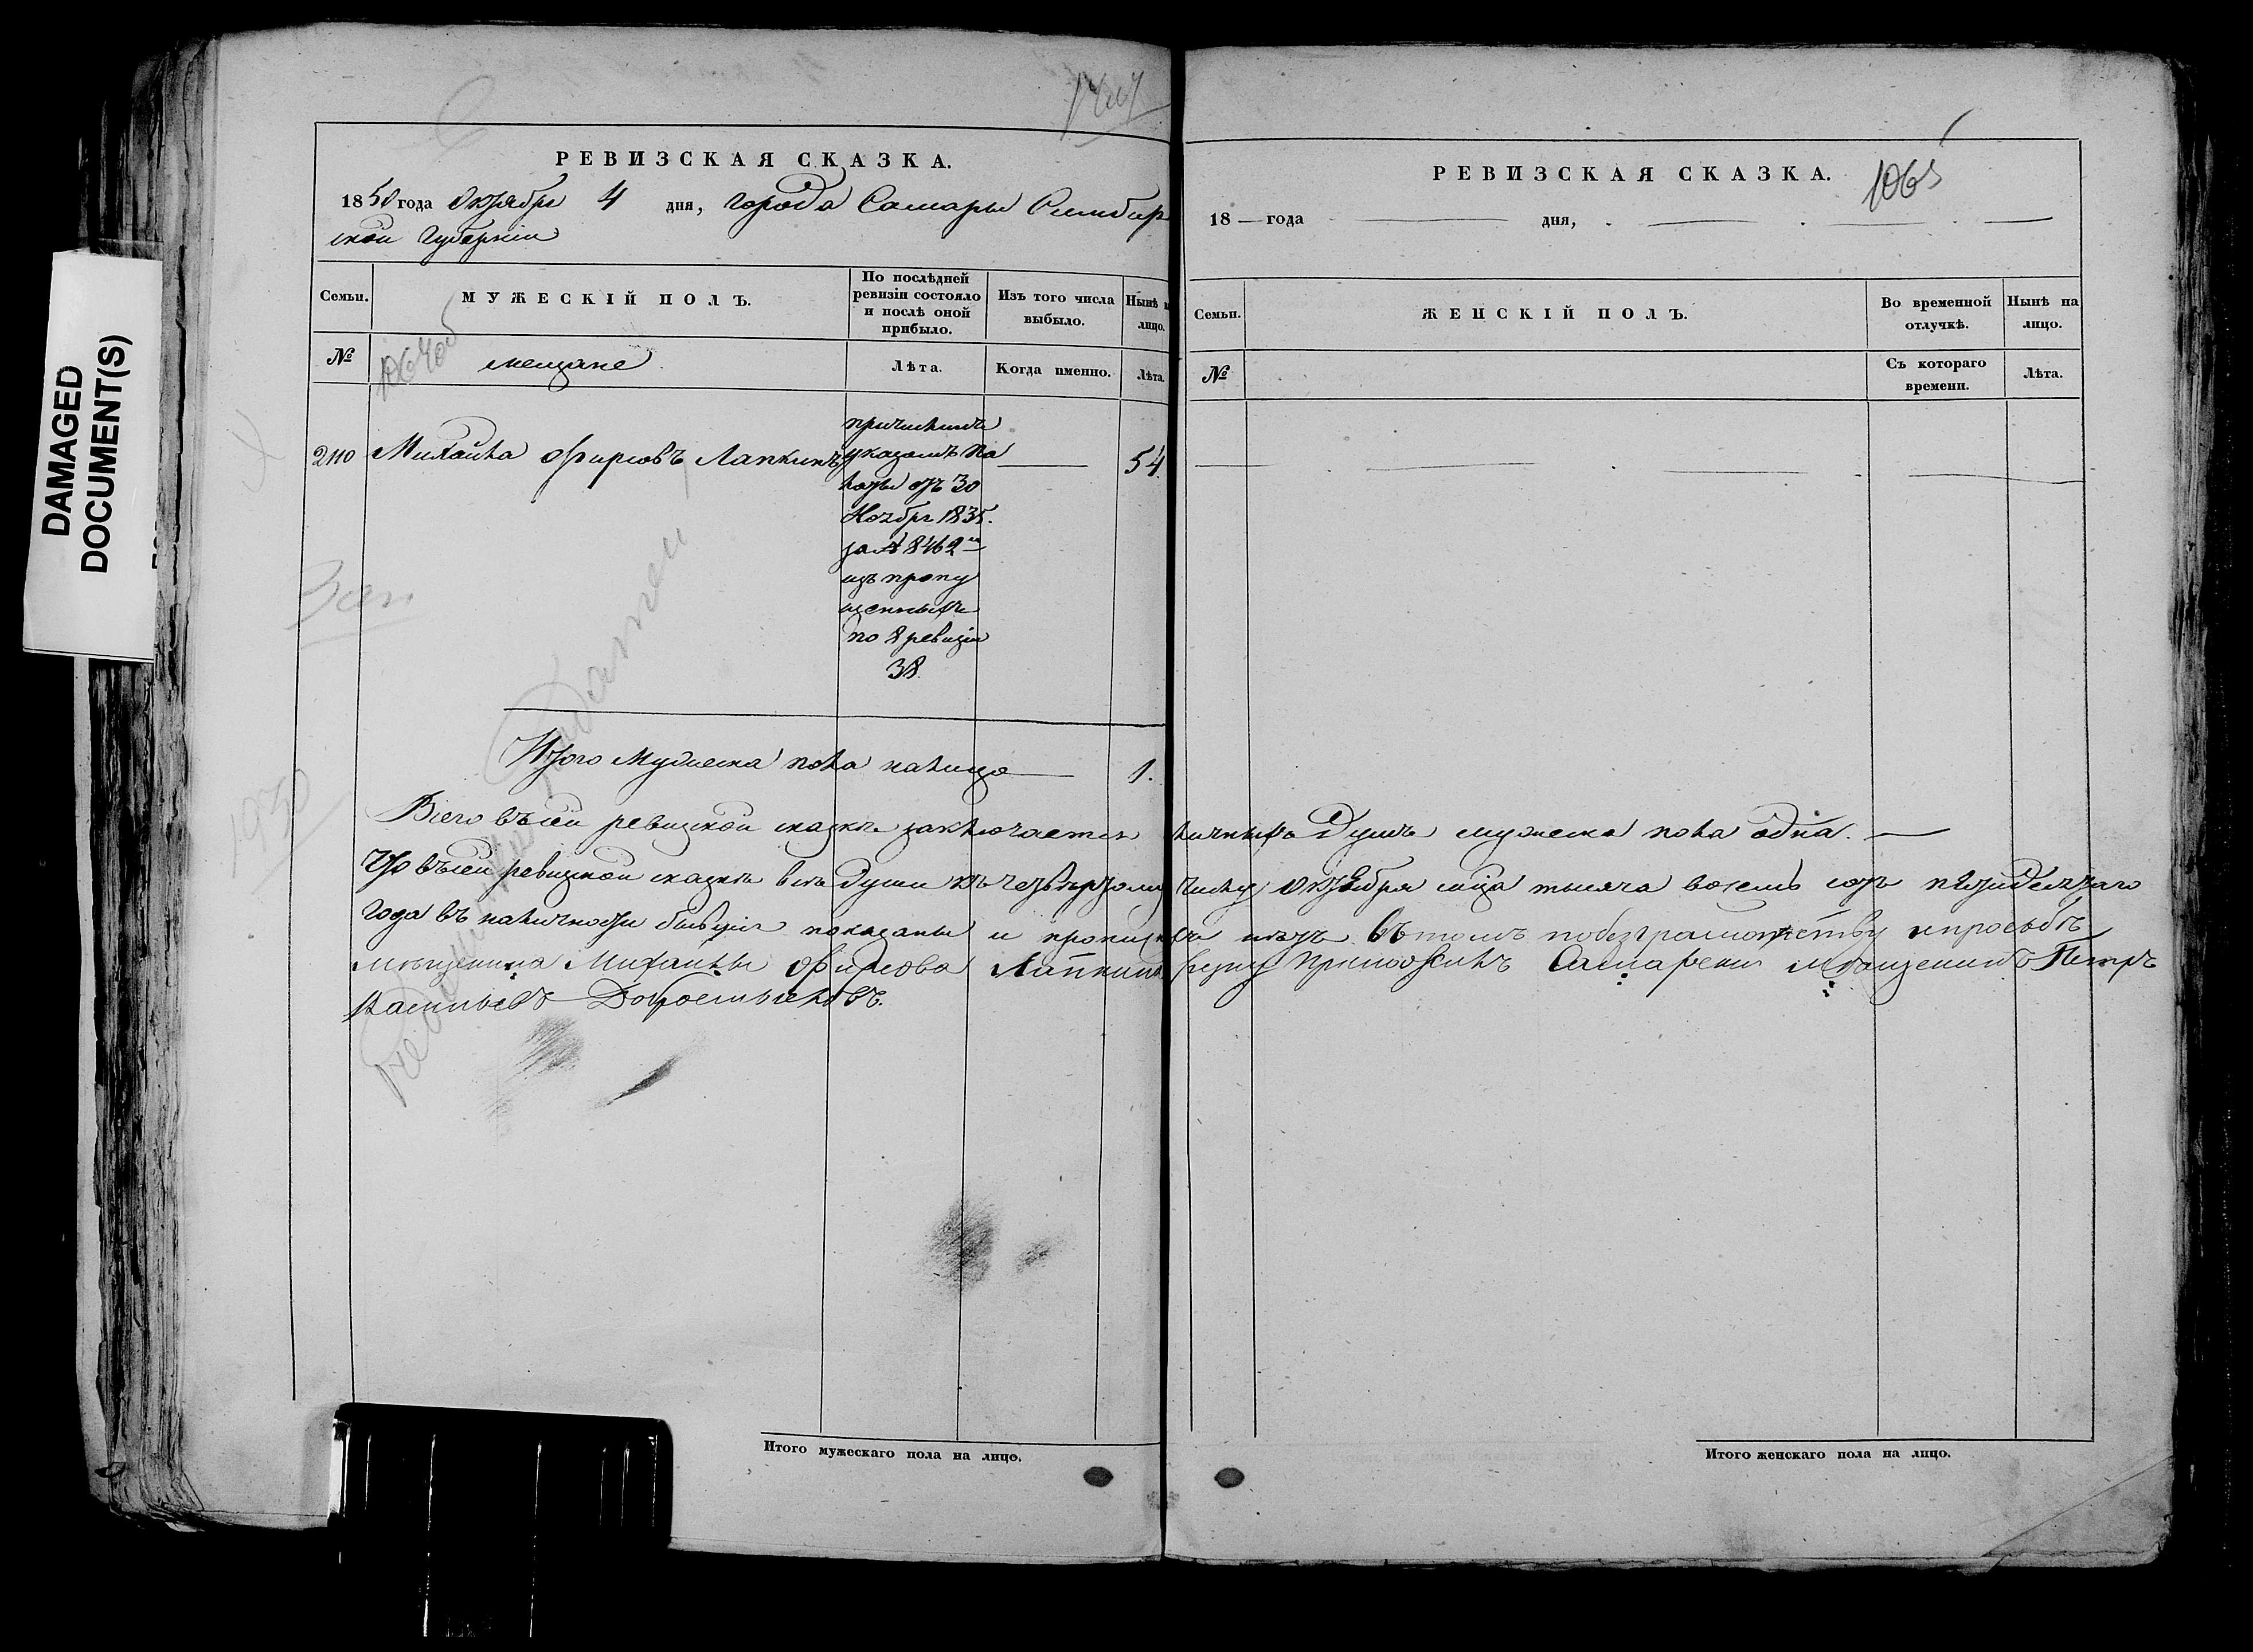 DAMAGED
DOCUMENT(S)
РЕВИЗСКАЯ СКАЗКА.
1850 года Октября 4 дня, города Самары Симбир
ской Губернии
Семьи.
МУЖЕСКІЙ ПОЛЪ.
По послѣдней
ревизіи состояло
и послѣ оной
прибыло.
Изъ того числа
выбыло.
Нынѣ н
лицо.
№
мещане
Лѣта.
Когда именно.
Лѣта.
2110 Михайла Фирсовъ Лапкинъ 54.
причисленъ
указомъ па
латы отъ 30
Ноября 1835.
за № 8469м
изъ пропу
щенныхъ
по 8 ревизіи
38.
Итого Мужеска пола налицо 1.
РЕВИЗСКАЯ СКАЗКА.
1065
18 — года дня,
Семьи.
ЖЕНСКІЙ ПОЛЪ.
Во временной
отлучкѣ.
Нынѣ на
лицо.
№
Съ котораго
времени.
Лѣта.
Всего въ сей ревизкой сказкѣ заключается личныхъ Душъ мужеска пола одна.
Что въ сей ревизкой сказкѣ всѣ души къ четвертому числу Октября мца тысяча восемь сотъ пятидесятаго
Года въ наличности бывшия показаны и прописных нѣтъ въ томъ по безграмотству и просьбѣ
мѣщенина Михайлы Фирсова Лапкина руку приложилъ Самарски мѣщенинъ Петръ
Васильевъ
Итого мужескаго пола на лицо.
Итого женскаго пола на лицо.